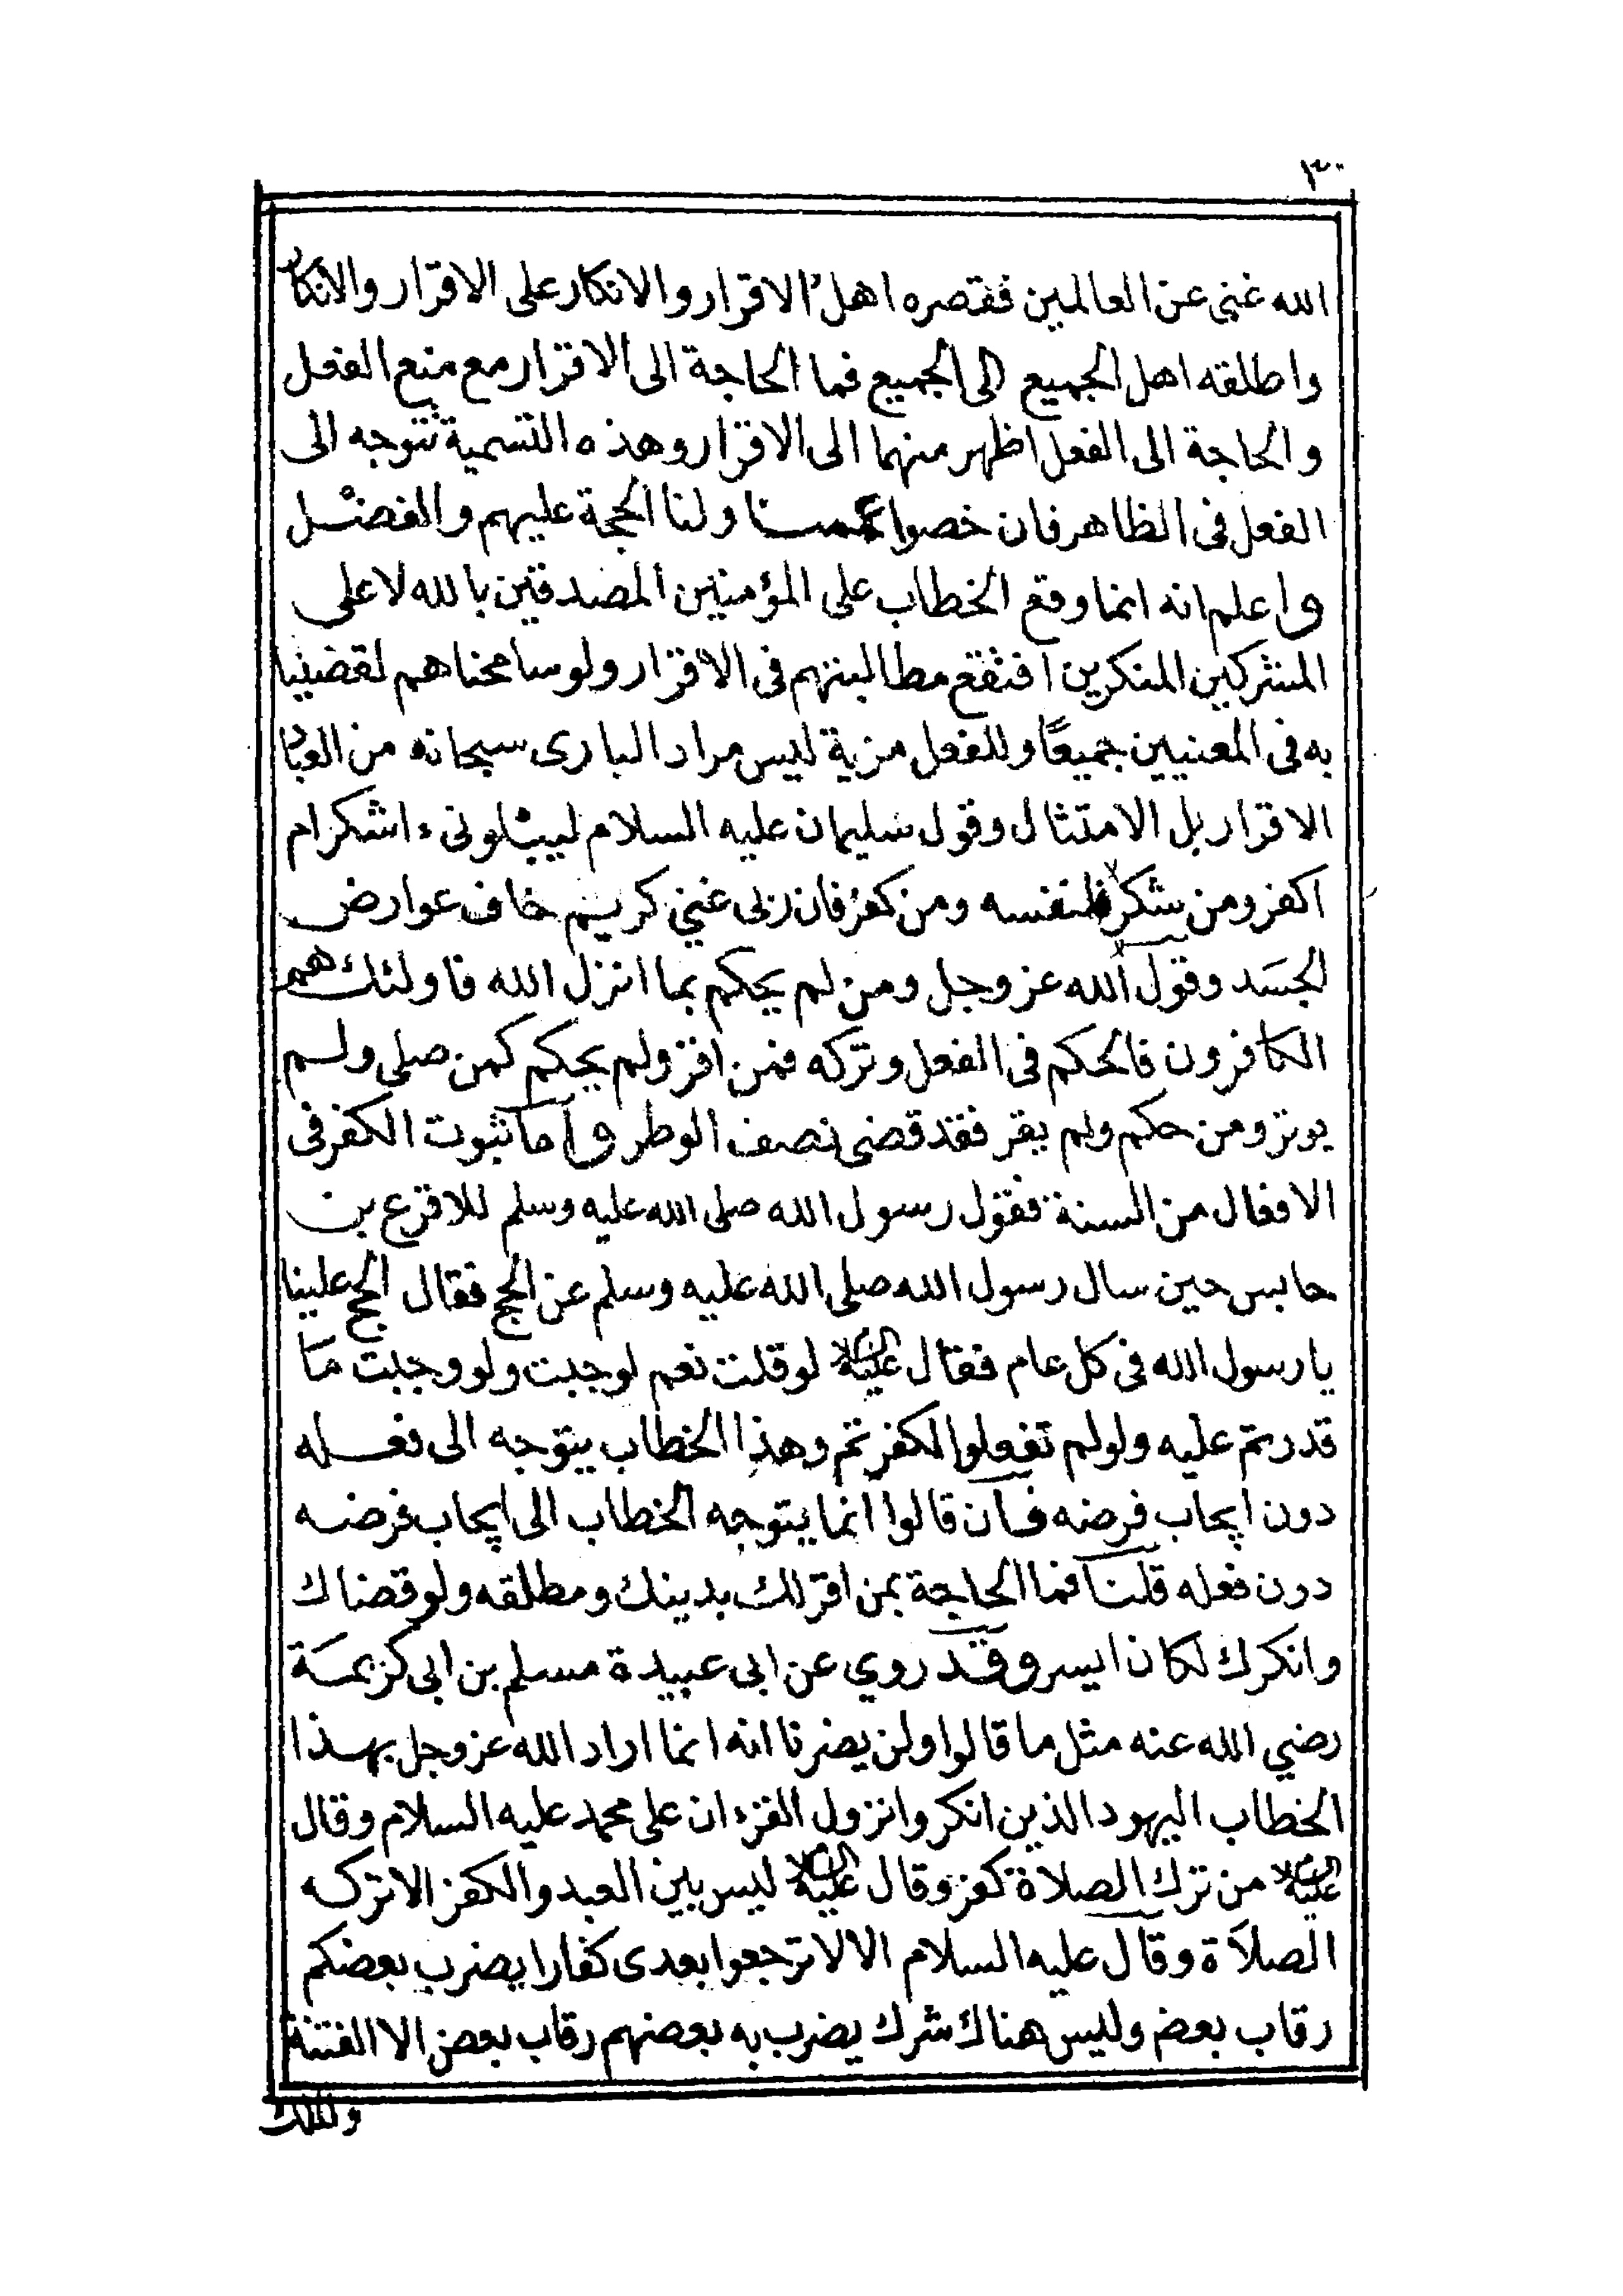 ٣٠
الله غنى عن العالمين فقصره اهل الاقرار والانكار على الاقرار والانكار
واطلقه اهل الجميع الى الجميع فما الحاجة الى الاقرار مع منع الفعل
والحاجة الى الفعل اظهر منهما الى الاقرار وهذه التسمية تتوجه الى
الفعل فى الظاهر فان خصوا عممنا ولنا الحجة عليهم والفضل
واعلم انه انما وقع الخطاب على المؤمنين المصدقين بالله لا على
المشركين المنكرين افتقع مطالبتهم فى الاقرار ولو سامحناهم لقضينا
به فى المعنيين جميعًا وللفعل مزية ليس مراد البارى سبحانه من العباد
الاقرار بل الامتثال وقول سليمان عليه السلام ليبلونى ءاشكر ام
اكفر ومن شكر فلنفسه ومن كفر فان ربى غني كريم خاف عوارض
الجسَد وقول الله عز وجل ومن لم يحكم بما انزل الله فاولئك هم
الكافرون فالحكم فى الفعل وتركه فمن اقر ولم يحكم كمن صلى ولم
يوتر ومن حكم ولم يقر فقد قضى نصف الوطر واما ثبوت الكفر فى
الافعال من السنة فقول رسول الله صلى الله عليه وسلم للاقرع بن
حابس حين سال رسول الله صلى الله عليه وسلم عن الحج فقال الحج علينا
يا رسول الله فى كل عام فقال عليه السلام لو قلت نعم لوجبت ولو وجبت مَا
قدرتم عليه ولو لم تفعلوا لكفرتم وهذا الخطاب يتوجه الى فعله
دون ايجاب فرضه فان قالوا انما يتوجه الخطاب الى ايجاب فرضه
دون فعله قلنا فما الحاجة بمن اقر لك بدينك ومطلقه ولو قضاك
وانكرك لكان ايسر وقد روي عن ابى عبيدة مسلم بن ابى كريمَة
رضي الله عنه مثل ما قالوا ولن يضرنا انه انما اراد الله عز وجل بهذا
الخطاب اليهود الذين انكروا نزول القرءان على محمد عليه السلام وقال
عليه السلام من ترك الصلاة كفر وقال عليه السلام ليس بين العبد والكفر الا تركه
الصلاة وقال عليه السلام الا لا ترجعوا بعدى كفارا يضرب بعضكم
رقاب بعض وليس هناك شرك يضرب به بعضهم رقاب بعض الا الفتنة